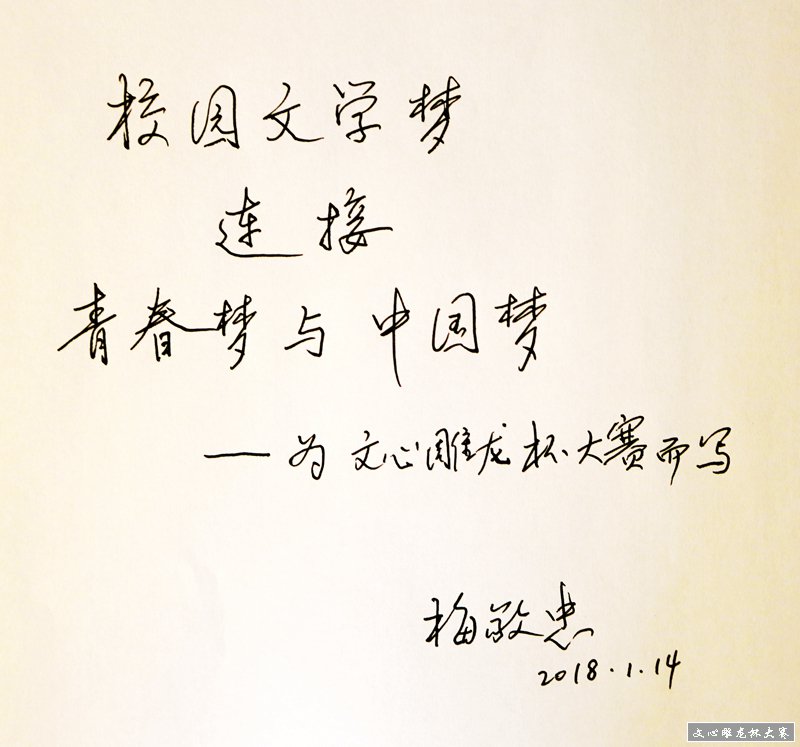 校园文学梦
连接
青春梦与中国梦
——为文心雕龙杯大赛而写
梅敬忠
2018.1.14
文心雕龙杯大赛